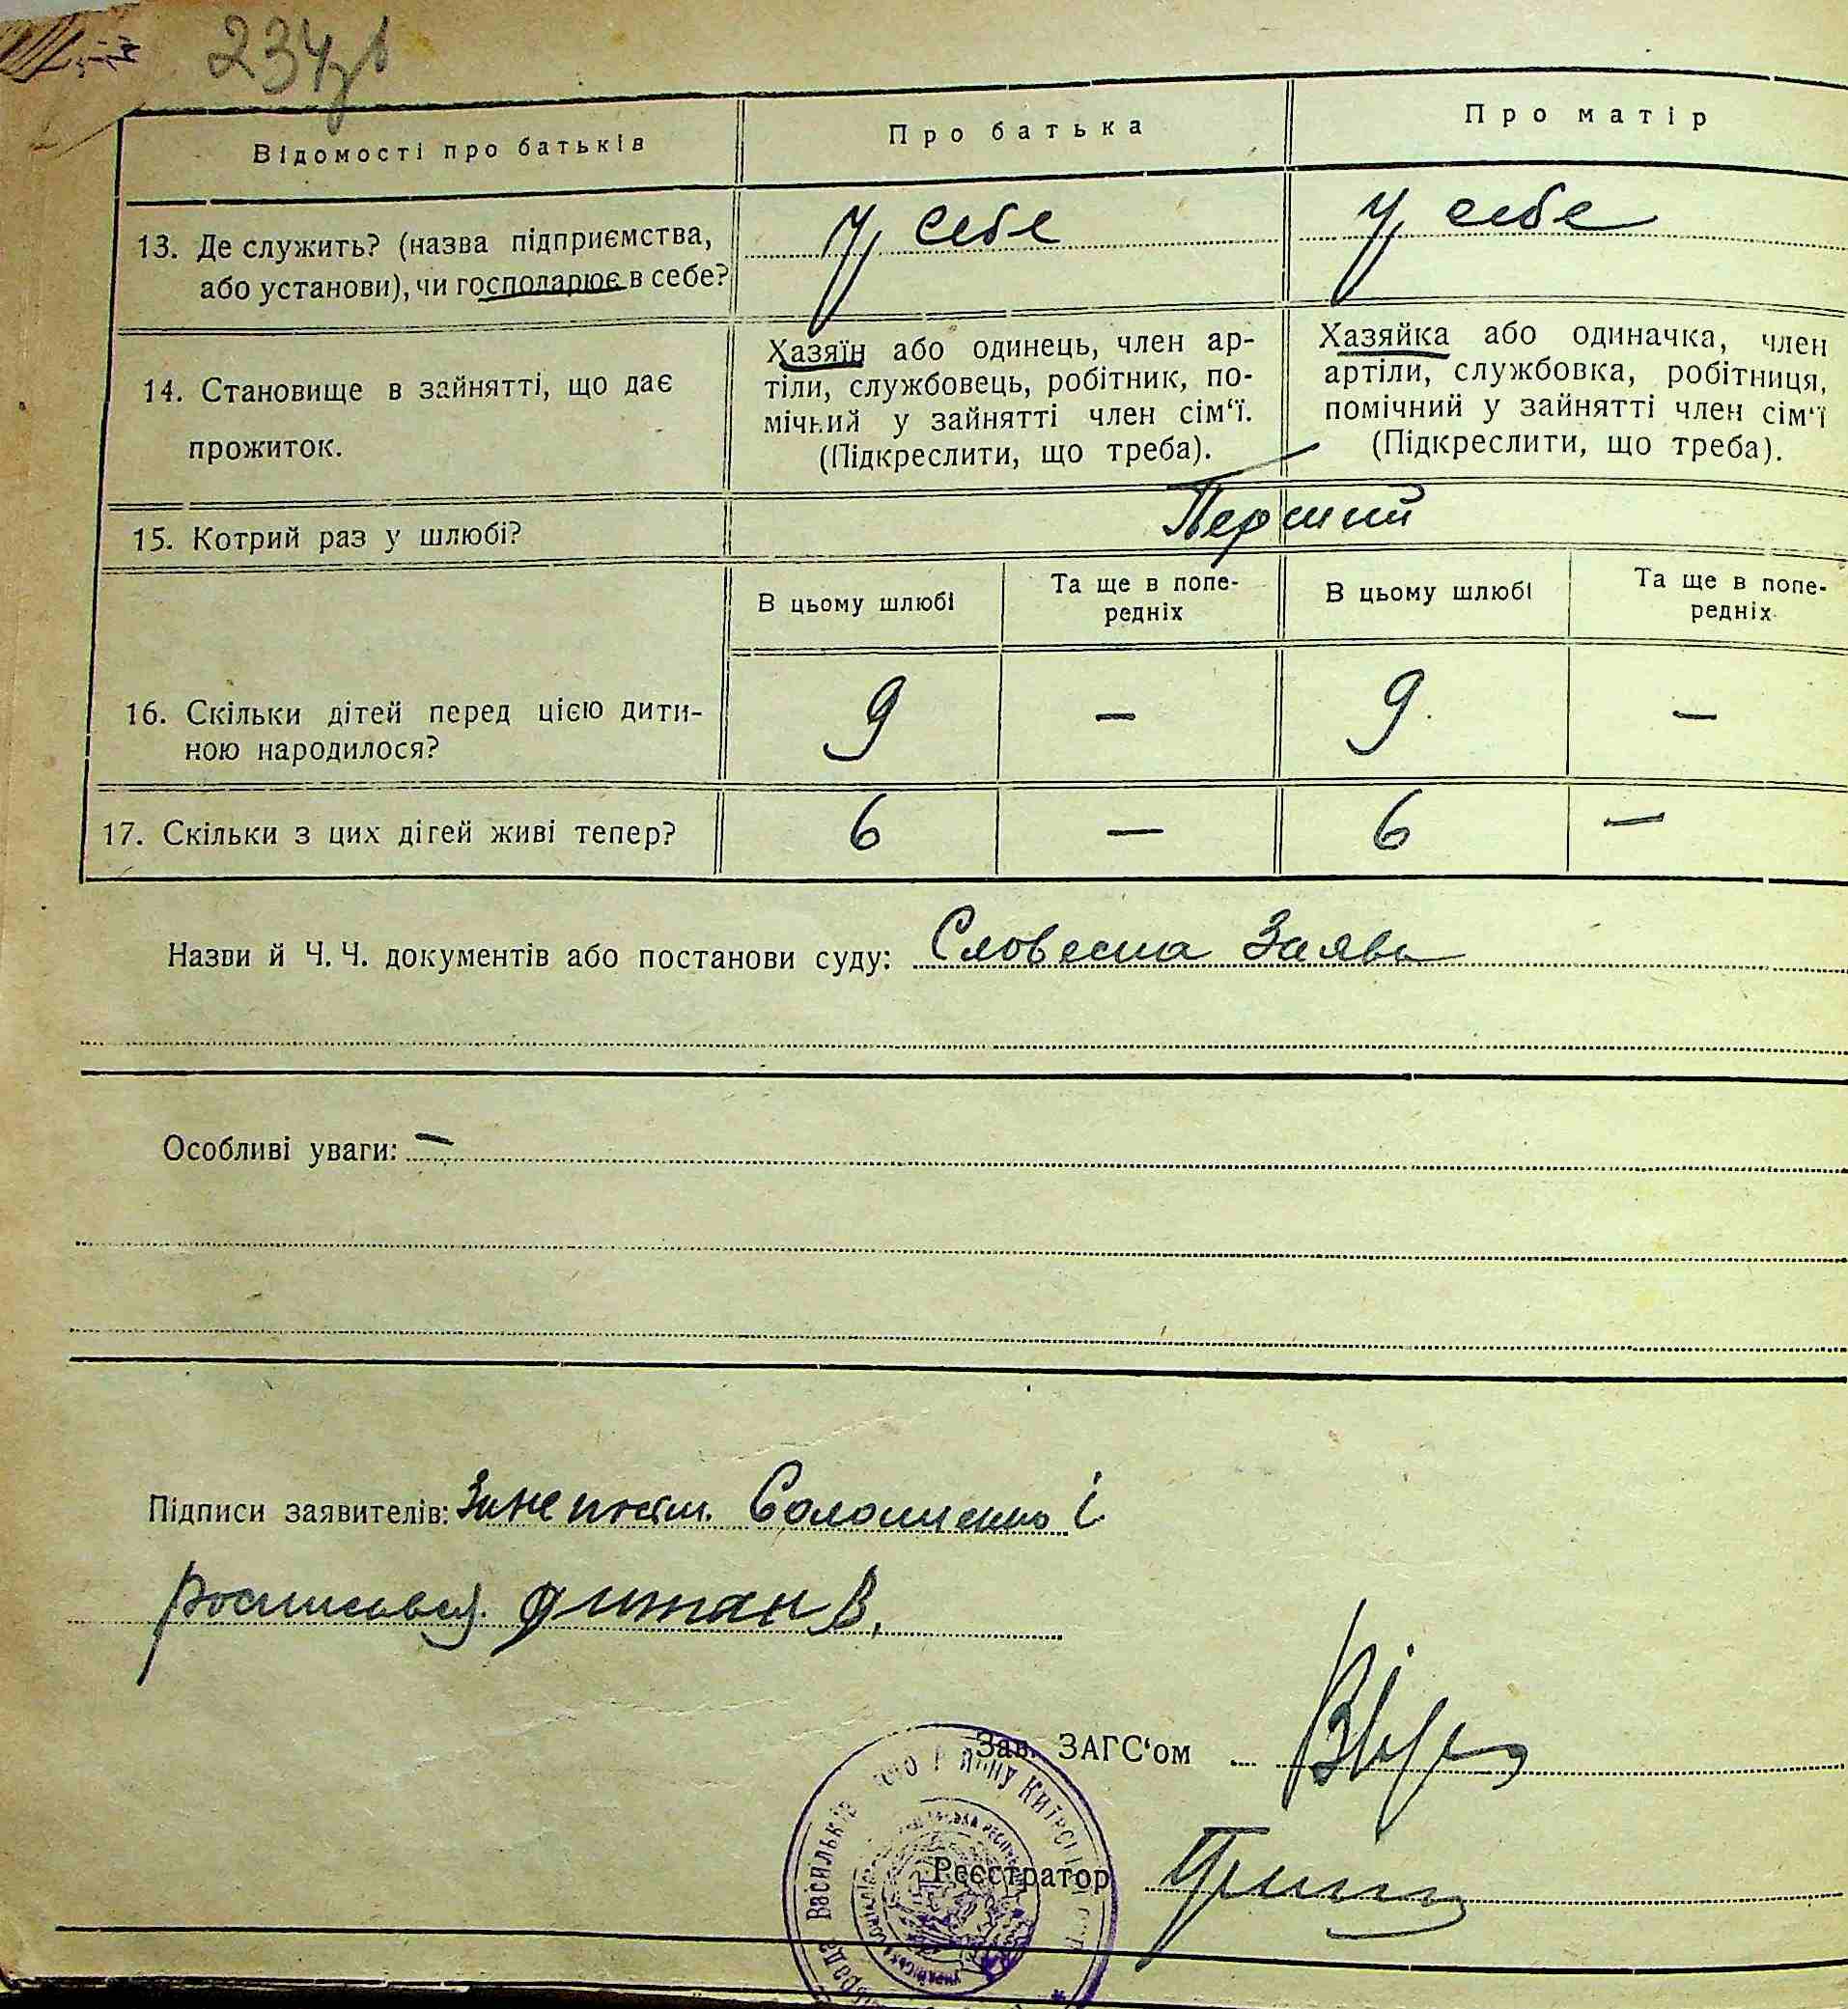 234
Відомості про батьків
Про батька
Про матір
13. Де служить? (назва підприємства,
або установи), чи господарює в себе?
У себе
У себе
14. Становище в зайнятті, що дає
прожиток.
Хазяїн або одинець, член ар-
тіли, службовець, робітник, по-
мічний у зайнятті член сім'ї.
(Підкреслити, що треба).
Хазяйка або одиначка, член
артіли, службовка, робітниця,
помічний у зайнятті член сім'ї
(Підкреслити, що треба).
15. Котрий раз у шлюбі?
Перший
В цьому шлюбі
Та ще в попе-
редніх
В цьому шлюбі
Та ще в попе-
редніх
16. Скільки дітей перед цією дити-
ною народилося?
9 — 9 —
17. Скільки з цих дітей живі тепер?
6 — 6 —
Назви й Ч. Ч. документів або постанови суду: Словесна Заява
Особливі уваги: —
Підписи заявителів: За непись. Соломиенко і
росписався В.
Зав. ЗАГС'ом
Реєстратор